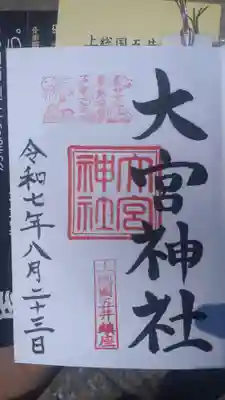 上総国五井
大宮神社
大宮神社
五井鎮座
令和七年八月二十三日